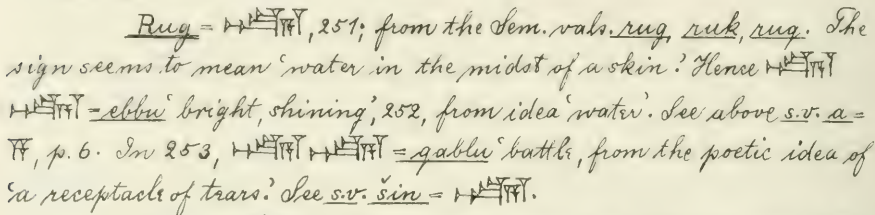 Rug = , 251; from the Sem. vals. rug, ruk, ruq. The
sign seems to mean ‘water in the midst of a skin.’ Hence
= ebbu ‘bright, shining’, 252, from idea ‘water’. See above s.v. a =
𒀀, p. 6. In 253, = qablu ‘battle, from the poetic idea of
‘a receptacle of tears.’ See s.v. šin = .